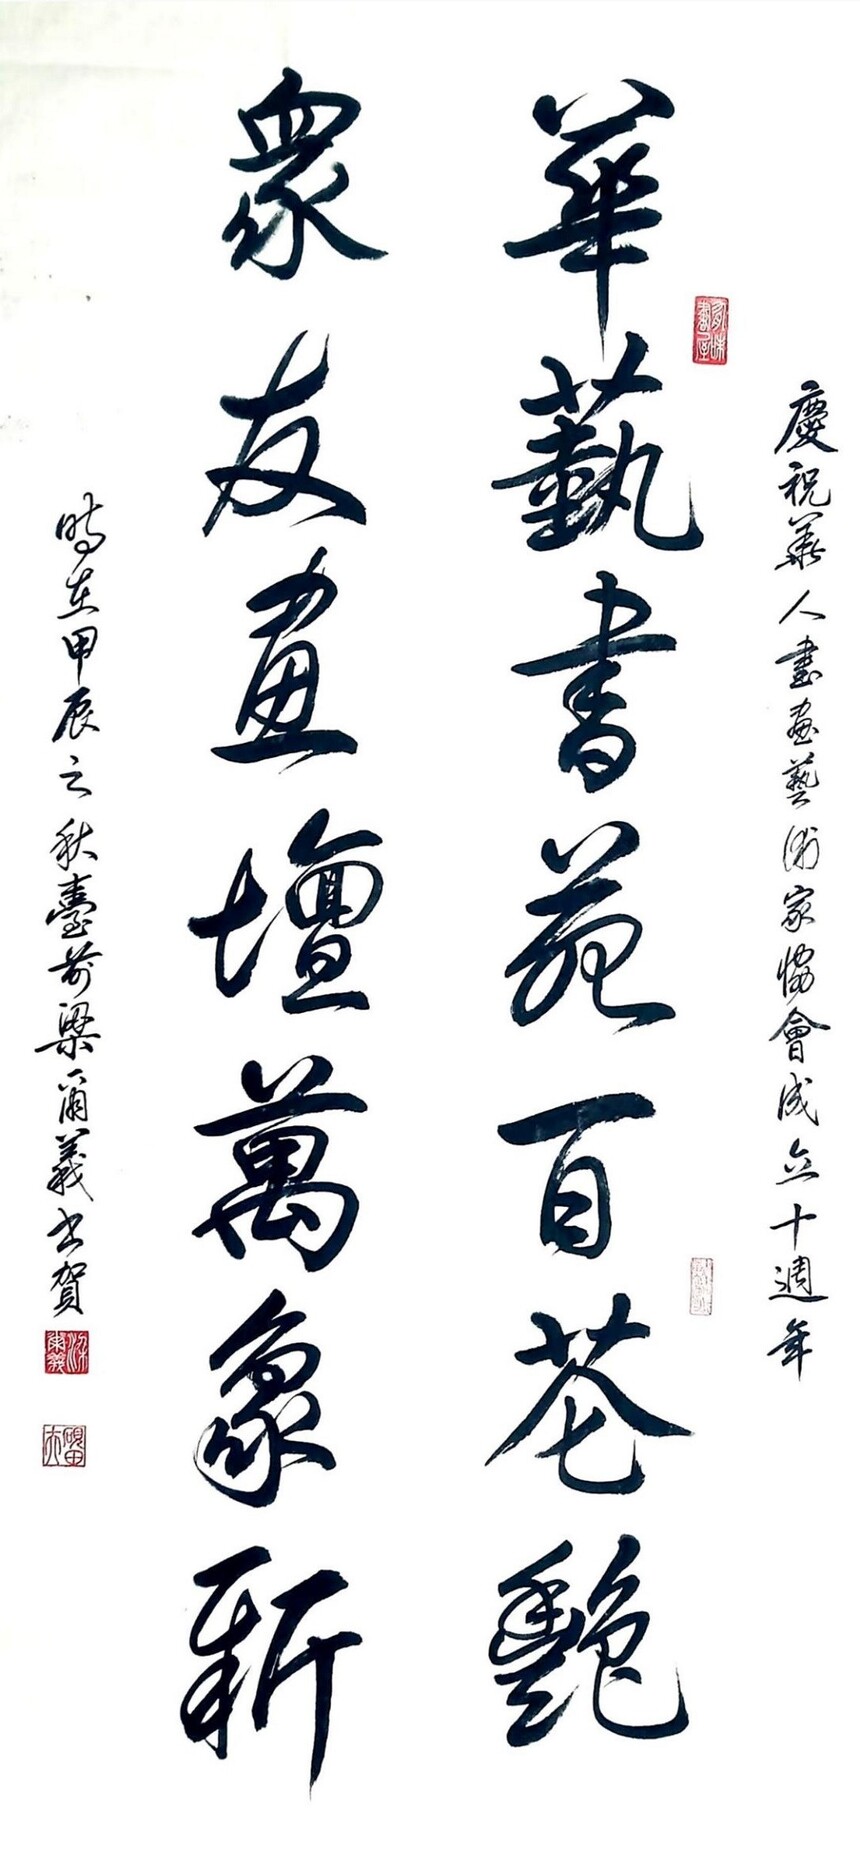 慶祝華人書畫藝術家協會成立十週年
華藝書苑百花艷
衆友畫壇萬象新
時在甲辰之秋臺前梁爾義書賀
梁爾義
硯田